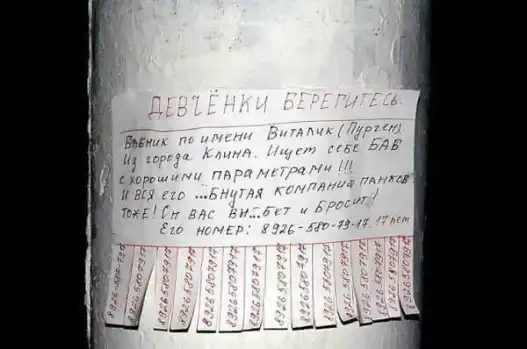 ДЕВЧЁНКИ БЕРЕГИТЕСЬ.
БАБНИК ПО ИМЕНИ ВИТАЛИК (ПУРГЕН)
ИЗ ГОРОДА КЛИНА. ИЩЕТ СЕБЕ БАБ
С ХОРОШИМИ ПАРАМЕТРАМИ!!!
И ВСЯ ЕГО ...БНУТАЯ КОМПАНИЯ ПАНКОВ
ТОЖЕ! ОН ВАС ВЫ...БЕТ И БРОСИТ!
ЕГО НОМЕР: 8926-580-79-17. 17 лет
8926-580-7917
89265807917
89265807917
89265807917
89265807917
89265807917
89265807917
89265807917
89265807917
89265807917
89265807917
89265807917
89265807917
89265807917